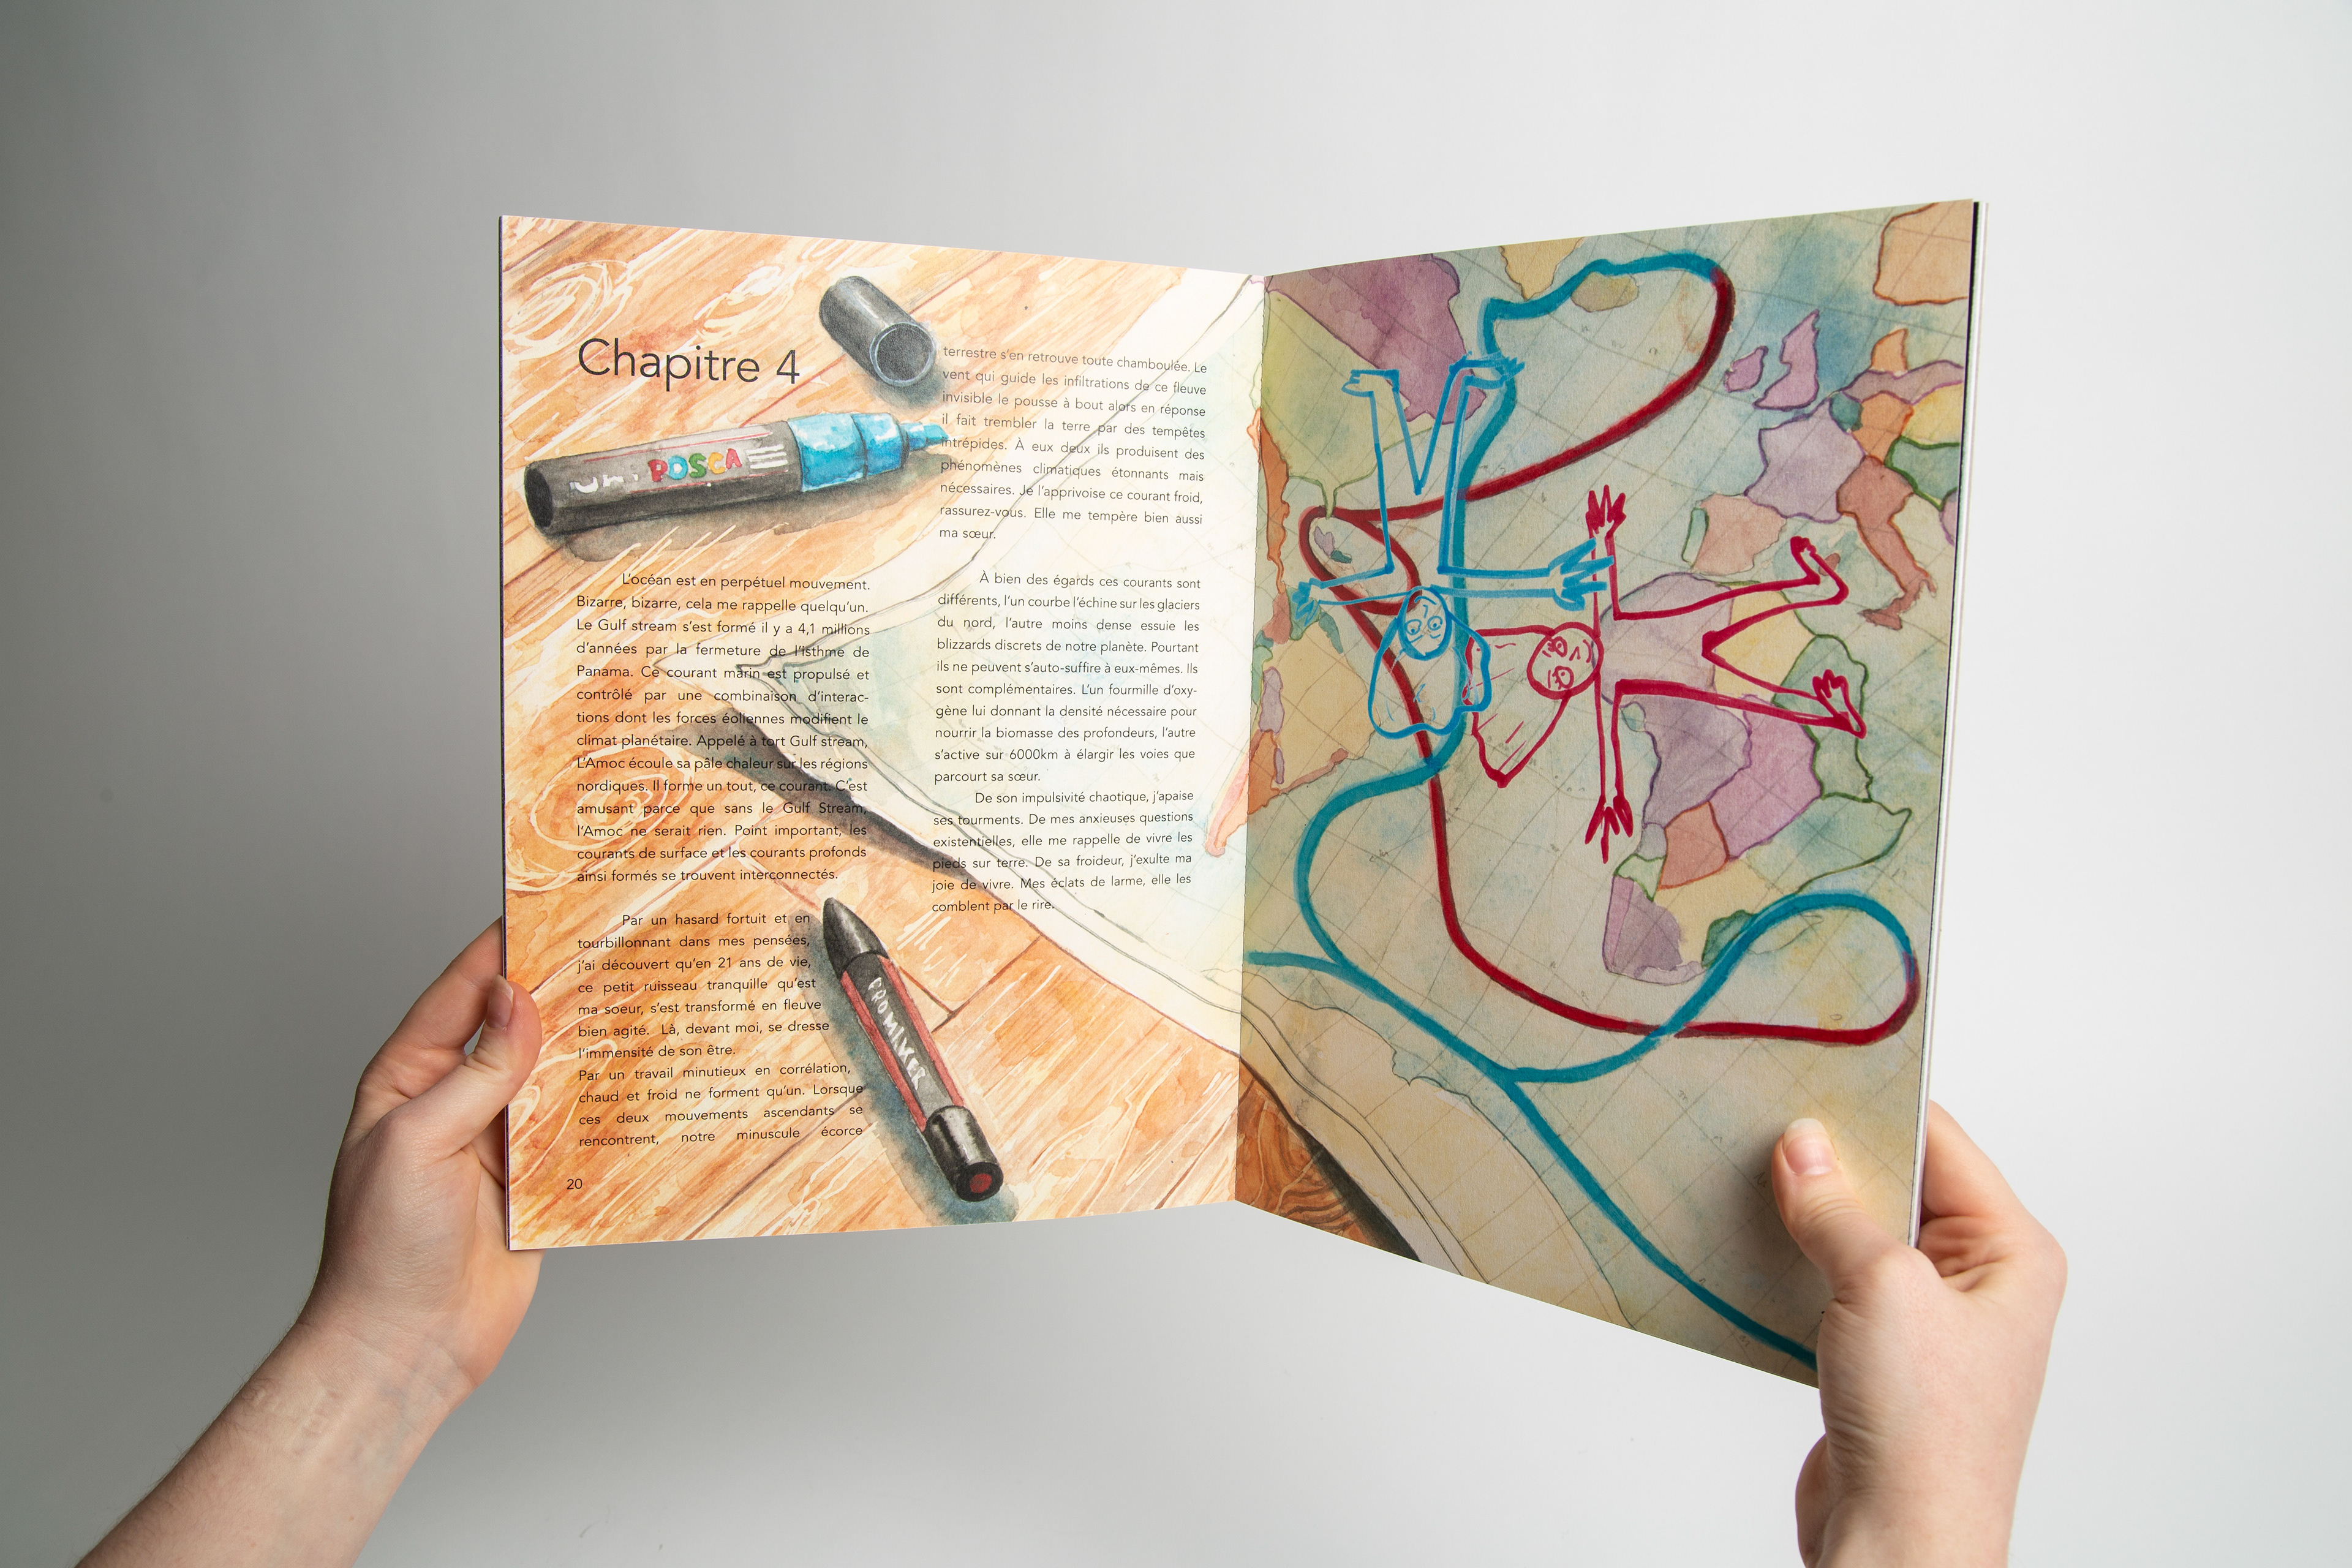 Chapitre 4
uni POSCA
L'océan est en perpétuel mouvement.
Bizarre, bizarre, cela me rappelle quelqu'un.
Le Gulf stream s'est formé il y a 4,1 millions
d'années par la fermeture de l'Isthme de
Panama. Ce courant marin est propulsé et
contrôlé par une combinaison d'interac-
tions dont les forces éoliennes modifient le
climat planétaire. Appelé à tort Gulf stream,
L'Amoc écoule sa pâle chaleur sur les régions
nordiques. Il forme un tout, ce courant. C'est
amusant parce que sans le Gulf Stream,
l'Amoc ne serait rien. Point important, les
courants de surface et les courants profonds
ainsi formés se trouvent interconnectés.
Par un hasard fortuit et en
tourbillonnant dans mes pensées,
j'ai découvert qu'en 21 ans de vie,
ce petit ruisseau tranquille qu'est
ma soeur, s'est transformé en fleuve
bien agité. Là, devant moi, se dresse
l'immensité de son être.
Par un travail minutieux en corrélation,
chaud et froid ne forment qu'un. Lorsque
ces deux mouvements ascendants se
rencontrent, notre minuscule écorce
20
terrestre s'en retrouve toute chamboulée. Le
vent qui guide les infiltrations de ce fleuve
invisible le pousse à bout alors en réponse
il fait trembler la terre par des tempêtes
intrépides. À eux deux ils produisent des
phénomènes climatiques étonnants mais
nécessaires. Je l'apprivoise ce courant froid,
rassurez-vous. Elle me tempère bien aussi
ma sœur.
À bien des égards ces courants sont
différents, l'un courbe l'échine sur les glaciers
du nord, l'autre moins dense essuie les
blizzards discrets de notre planète. Pourtant
ils ne peuvent s'auto-suffire à eux-mêmes. Ils
sont complémentaires. L'un fourmille d'oxy-
gène lui donnant la densité nécessaire pour
nourrir la biomasse des profondeurs, l'autre
s'active sur 6000km à élargir les voies que
parcourt sa sœur.
De son impulsivité chaotique, j'apaise
ses tourments. De mes anxieuses questions
existentielles, elle me rappelle de vivre les
pieds sur terre. De sa froideur, j'exulte ma
joie de vivre. Mes éclats de larme, elle les
comblent par le rire.
PROMIXER